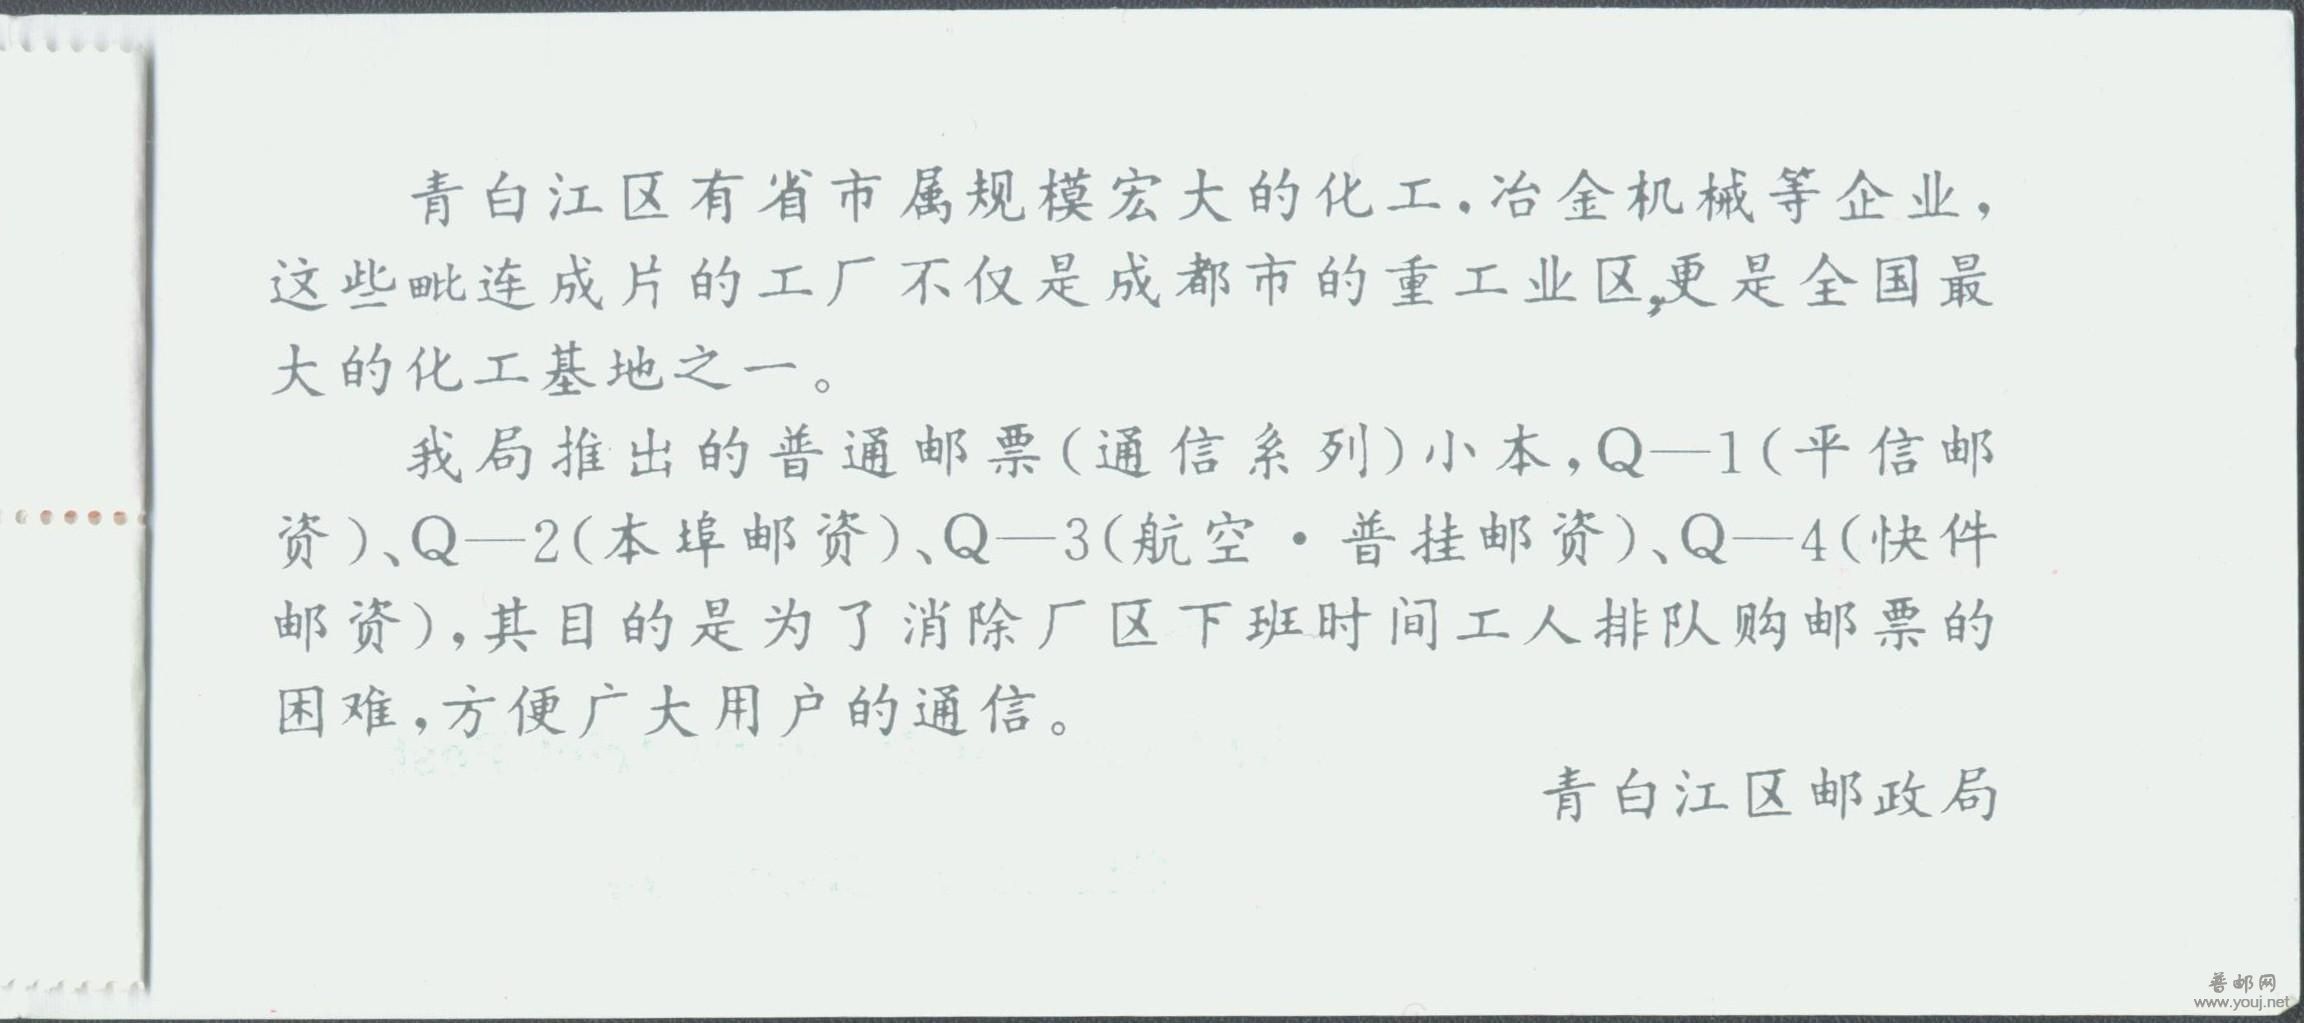 青白江区有省市属规模宏大的化工.冶金机械等企业,
这些毗连成片的工厂不仅是成都市的重工业区,更是全国最
大的化工基地之一。
我局推出的普通邮票(通信系列)小本,Q—1(平信邮
资)、Q—2(本埠邮资)、Q—3(航空·普挂邮资)、Q—4(快件
邮资),其目的是为了消除厂区下班时间工人排队购邮票的
困难,方便广大用户的通信。
青白江区邮政局
普邮网
www.youj.net